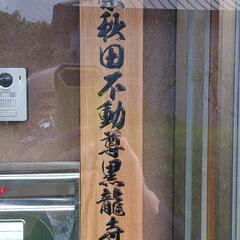 秋田不動尊黒龍寺